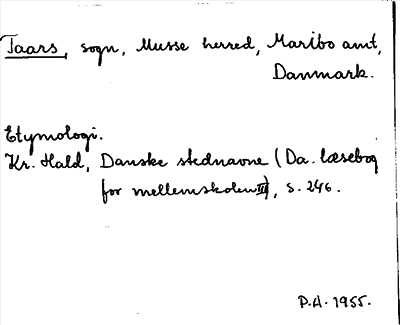 Taars, sogn, Musse herred, Maribo amt,
Danmark.
Etymologi.
Kr. Hald, Danske stednavne (Da. læsebog
for mellemskolen III), s. 246.
P.A. 1955.